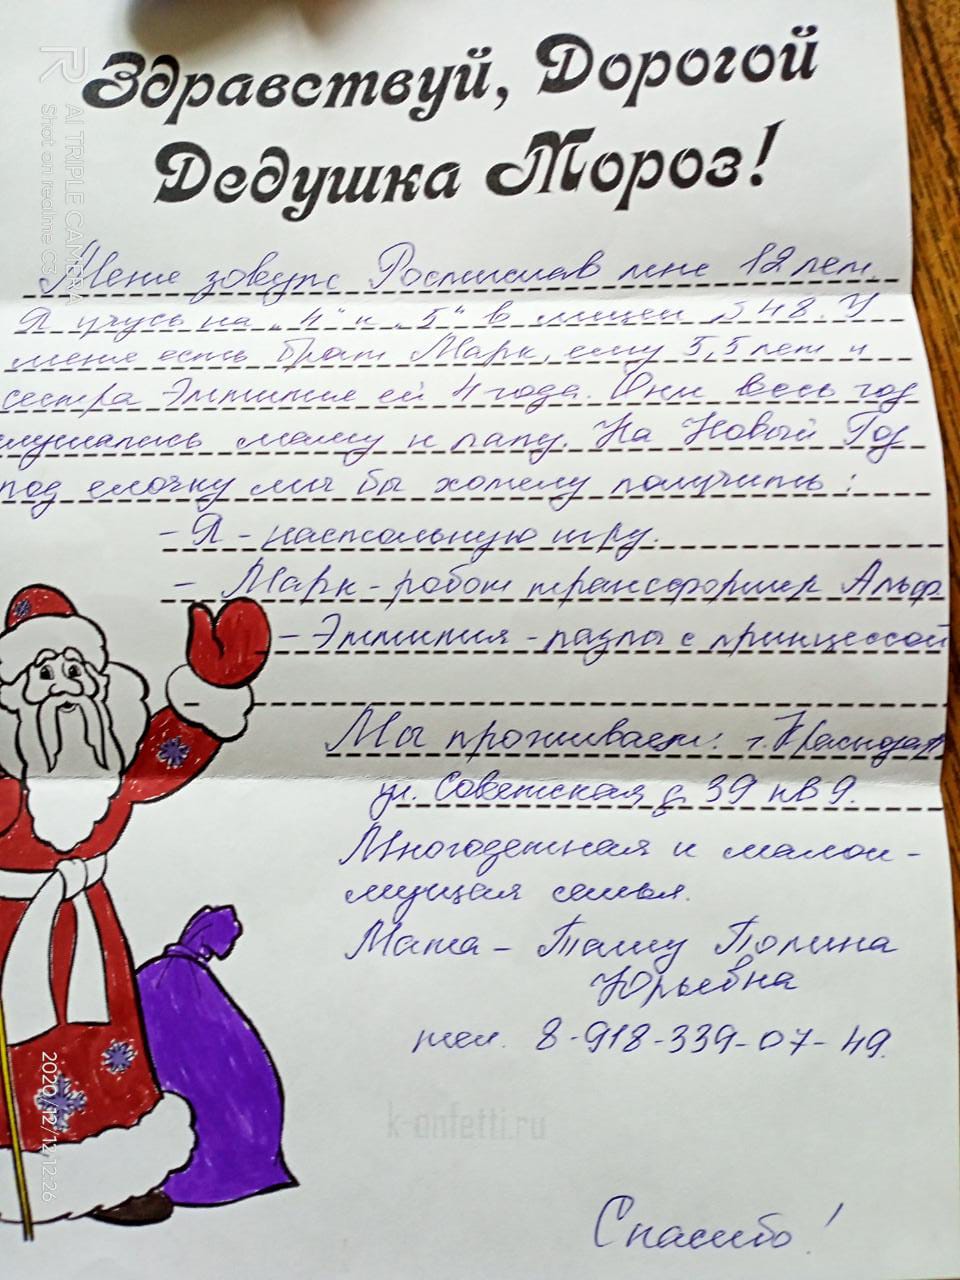 Здравствуй, Дорогой
Дедушка Мороз!
Меня зовут Ростислав мне 12 лет.
Я учусь на „4" и „5" в лицеи №48. У
меня есть брат Марк, ему 5,5 лет и
сестра Эмилия ей 4 года. Они весь год
слушались маму и папу. На Новый Год
под елочку мы бы хотели получить:
- Я - настольную игру.
- Марк - робот трансформер Альф
- Эмилия - пазлы с принцессой
Мы проживаем: г. Краснодар
ул. Советская д 39 кв 9.
Многодетная и малои-
мущая семья.
Мама - Полина
Юрьевна
тел. 8-918-339-07-49.
k-onfetti.ru
Спасибо!
R
AI TRIPLE CAMERA
Shot on realme C3
2020/12/12 12:26